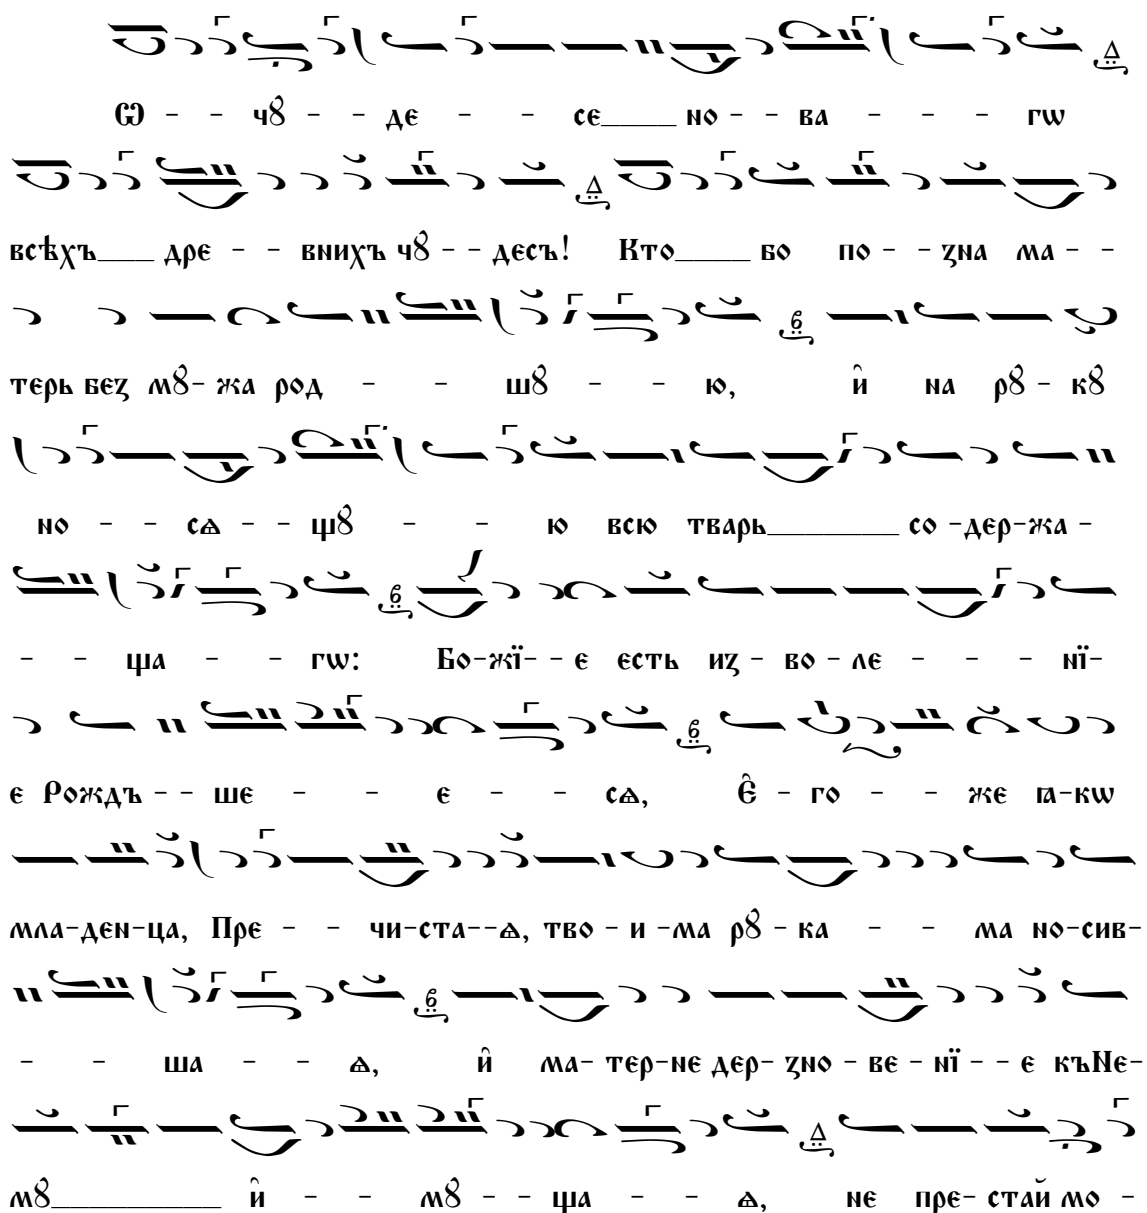 Ѿ - - чꙋ̂ - - де - - се____ но - - ва - - - гѡ
всѣхъ___ дре - - внихъ чꙋ̂ - - десъ! Кто____ бо по - - зна ма - -
терь без мꙋ̂ - жа род - - шꙋ̂ - - ю, и̂ на рꙋ̂ - кꙋ̂
но - - сѧ - - щꙋ̂ - - ю всю тварь_______ со - дер - жа -
- - ща - - гѡ: Бо - жї - - е есть из - во - ле - - - нї -
е Рождъ - - ше - - е - - сѧ, Є̂ - го - - же ꙗ - кѡ
мла - ден - ца, Пре - - чи - ста - - ѧ, тво - и - ма рꙋ̂ - ка - - ма но - сив -
- - ша - - ѧ, и̂ ма - тер - не дер - зно - ве - нї - - е къ Не -
мꙋ̂_________ и̂ - - мꙋ̂ - - ща - - ѧ, не пре - стай мо -